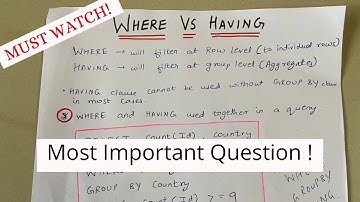 MUST WATCH!
WHERE VS HAVING
WHERE → will filter at Row level (to individual rows)
HAVING → will filter at group level (Aggregates)
• HAVING clause cannot be used without GROUP BY clause
in most cases.
WHERE and HAVING used together in a query
SELECT Count(Id), Country
Most Important Question !
GROUP BY Country
>= 9
GROUP BY